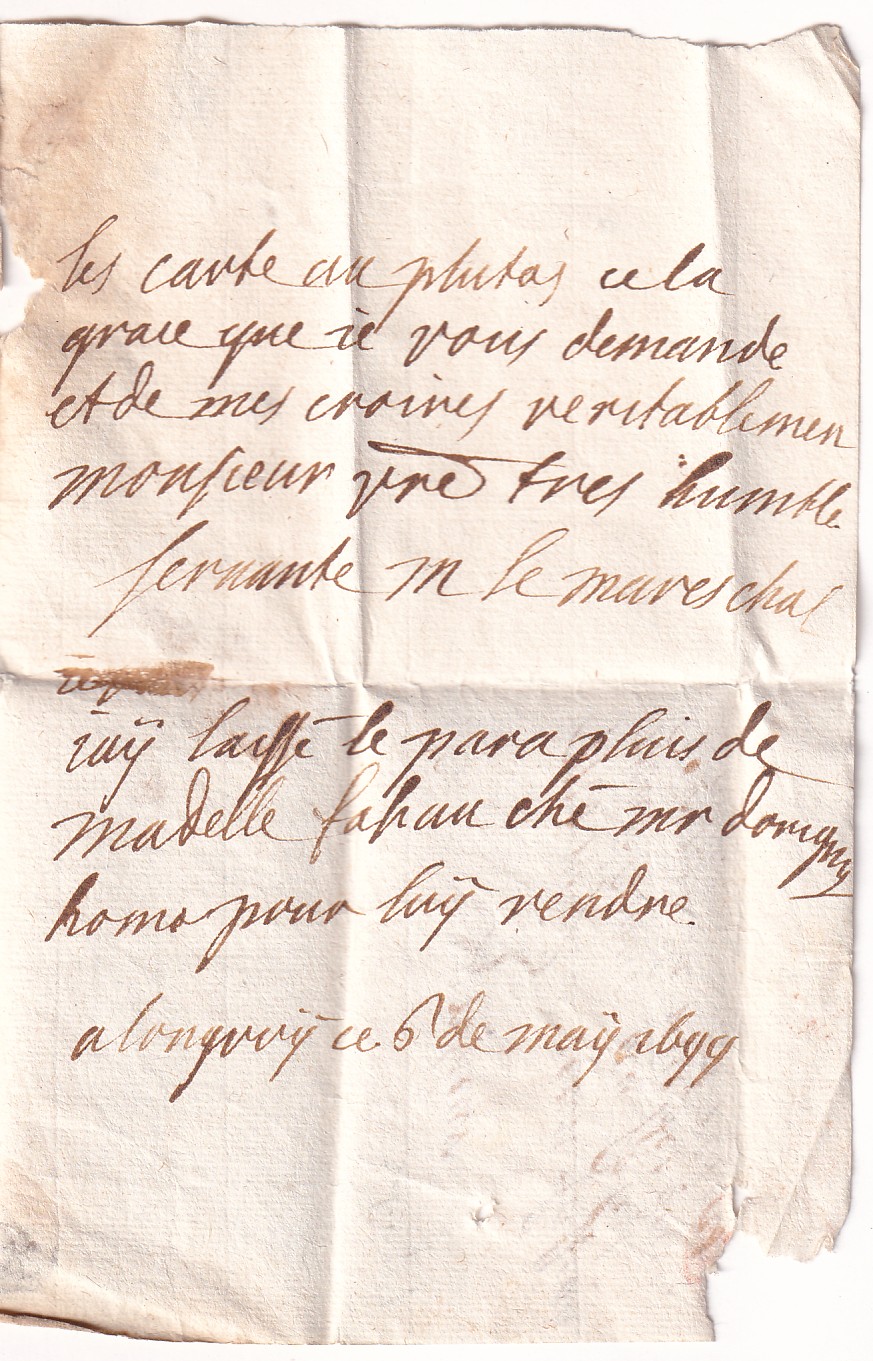 les carte au plutos ce la
grace que ie vous demande
et de mes croires veritablemen
monsieur vre tres humble
servante m le mareschal
iaÿ laissé le parapluis de
madelle fahau ché mr dorigny
homo pour luÿ rendre
a longwiÿ ce 6 de maÿ 1699